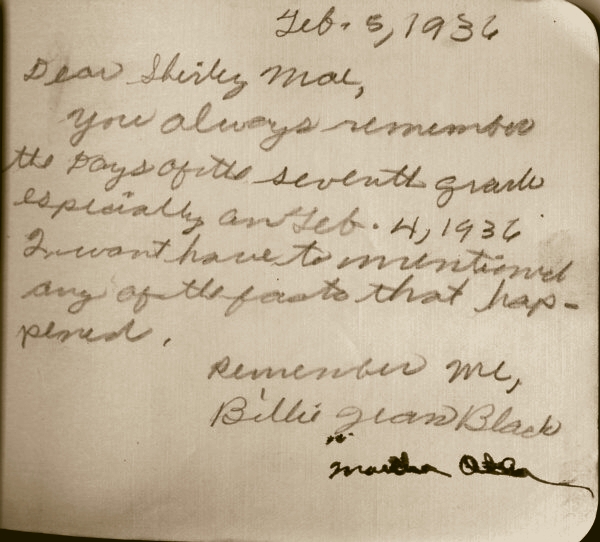 Feb. 5, 1936
Dear Shirley Mae,
You always remember
the Days of the seventh grade
especially on Feb. 4, 1936
I want have to mentioned
any of the facts that hap-
pened.
Remember Me,
Billie Jean Black
Martha